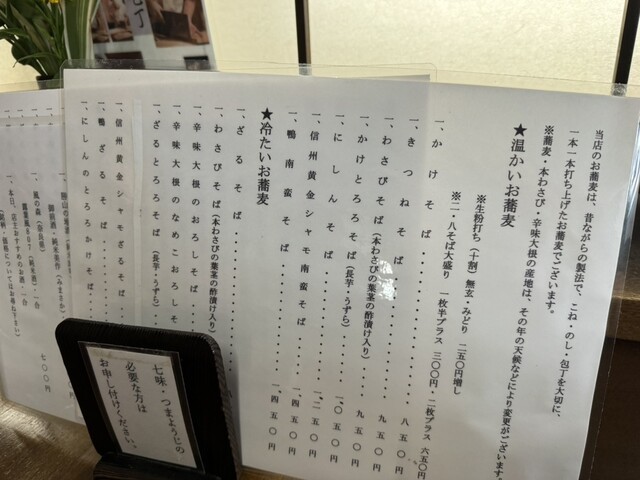 当店のお蕎麦は、昔ながらの製法で、こね・のし・包丁を大切に、
一本一本打ち上げたお蕎麦でございます。
※蕎麦・本わさび・辛味大根の産地は、その年の天候などにより変更がございます。
★温かいお蕎麦
※生粉打ち(十割) 無玄・みどり 二五〇円増し
※二・八そば大盛り 一枚半プラス 三〇〇円・二枚プラス 六五〇円
一、かけそば・・・・・・・・・・・・八五〇円
一、きつねそば・・・・・・・・・・・九五〇円
一、わさびそば(本わさびの葉茎の酢漬け入り)九五〇円
一、かけとろろそば(長芋・うずら)・・・一〇五〇円
一、にしんそば・・・・・・・・・・・一二五〇円
一、信州黄金シャモ南蛮そば・・・・・・一四五〇円
一、鴨南蛮そば・・・・・・・・・・・一四五〇円
★冷たいお蕎麦
一、ざるそば・・・・・・・・・・・・
一、わさびそば(本わさびの葉茎の酢漬け入り)
一、辛味大根のおろしそば・・・・・・
一、辛味大根のなめこおろしそ
一、ざるとろろそば(長芋・うずら)・
一、信州黄金シャモざるそば・・・
一、鴨ざるそば・・・・・・
一、にしんのとろろかけそば・・・
御前酒・純米美作(みまさか)
七〇〇円
風の森(奈良県)
醸造風まかせ(純米酒)一合
一、本日、店主おすすめのお酒 一合
(銘柄・価格についてはお尋ね下さい)
七味・つまようじの
必要な方は
お申し付けください。